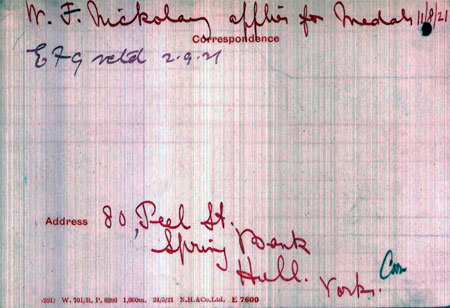 W. F. Nickolay applies for Medals 11/8/21
Correspondence
EF9 retd 2.9.21
Address 80, Peel St.
Spring Bank
Hull.
Yorks.
Com
(931) W. 791/R. P. 6280 1,000m. 24/5/21 N.H.&Co.Ltd. E 7600